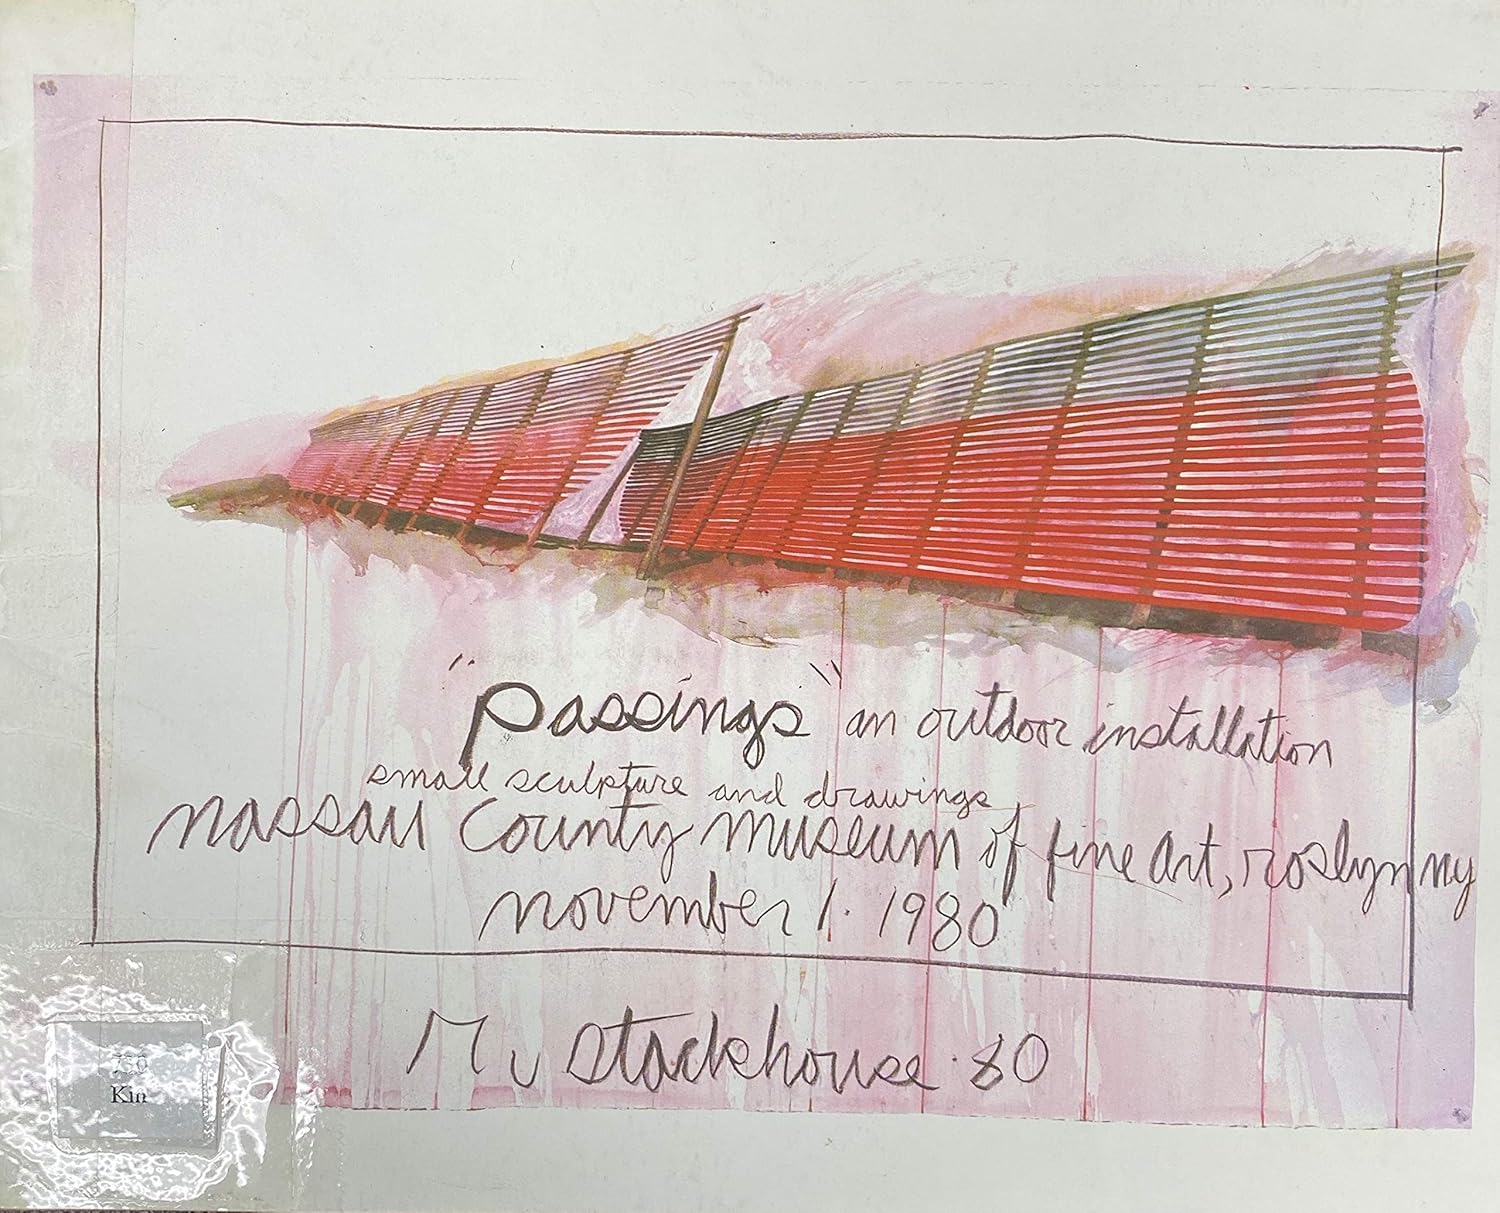 "passings" an outdoor installation
small sculpture and drawings
nassau County museum of fine art, roslyn ny
november 1. 1980
stackhouse. 80
Kin